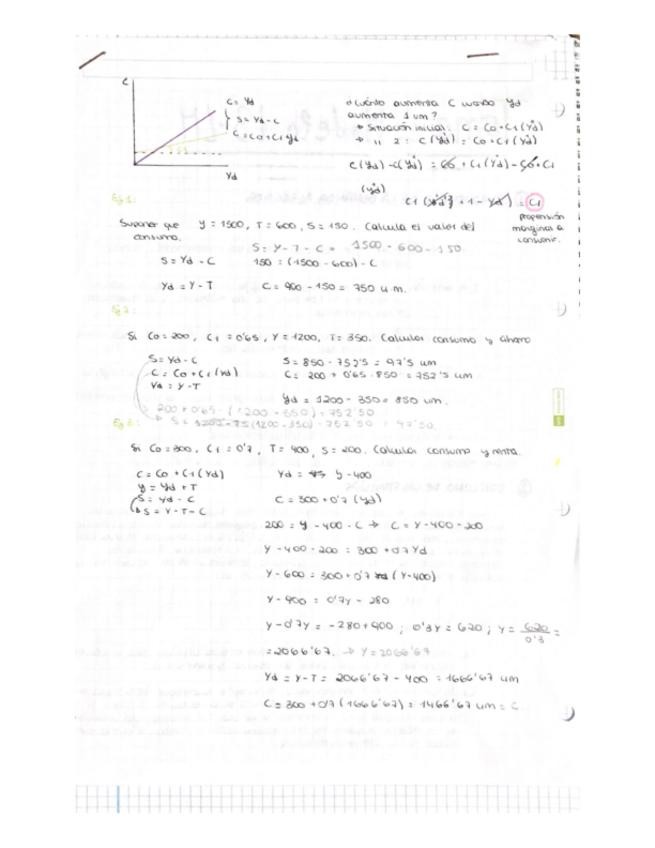 C
C = Yd
S = Yd - C
C = Co + C1 Yd
Yd
¿Cuánto aumenta C cuando Yd
aumenta 1 um?
→ Situación inicial: C = Co + C1 (Yd)
→ 11 2: C (Yd) = Co + C1 (Yd)
C (Yd) - C(Yd) = Co + C1 (Yd) - Co + C1
(Yd)
+ 1 - Yd) = C1
propensión
marginal a
consumir.
Ej 1:
Suponer que Y = 1500, T = 600, S = 150. Calcula el valor del
consumo.
S = Y - T - C = 1500 - 600 - 150
S = Yd - C 150 = (1500 - 600) - C
Yd = Y - T C = 900 - 150 = 750 u.m.
Ej 2:
Si Co = 200, C1 = 0'65, Y = 1200, T = 350. Calcular consumo y ahorro
S = Yd - C S = 850 - 752'5 = 97'5 um
C = Co + C1 (Yd) C = 200 + 0'65 · 850 = 752'5 um
Yd = Y - T
Yd = 1200 - 350 = 850 um.
200 + 0'65 · (1200 - 350) = 752'50
(1200 - 350) - 752'50 = 97'50.
Ej 3:
Si Co = 300, C1 = 0'7, T = 400, S = 200. Calcular consumo y renta.
C = Co + C1 (Yd) Yd = Y - 400
Y = Yd + T
S = Yd - C C = 300 + 0'7 (Yd)
S = Y - T - C
200 = Y - 400 - C → C = Y - 400 - 200
Y - 400 - 200 = 300 + 0'7 Yd
Y - 600 = 300 + 0'7 (Y - 400)
Y - 900 = 0'7Y - 280
Y - 0'7Y = -280 + 900 ; 0'3Y = 620 ; Y = 620 / 0'3 =
= 2066'67. → Y = 2066'67
Yd = Y - T = 2066'67 - 400 = 1666'67 um
C = 300 + 0'7 (1666'67) = 1466'67 um = C